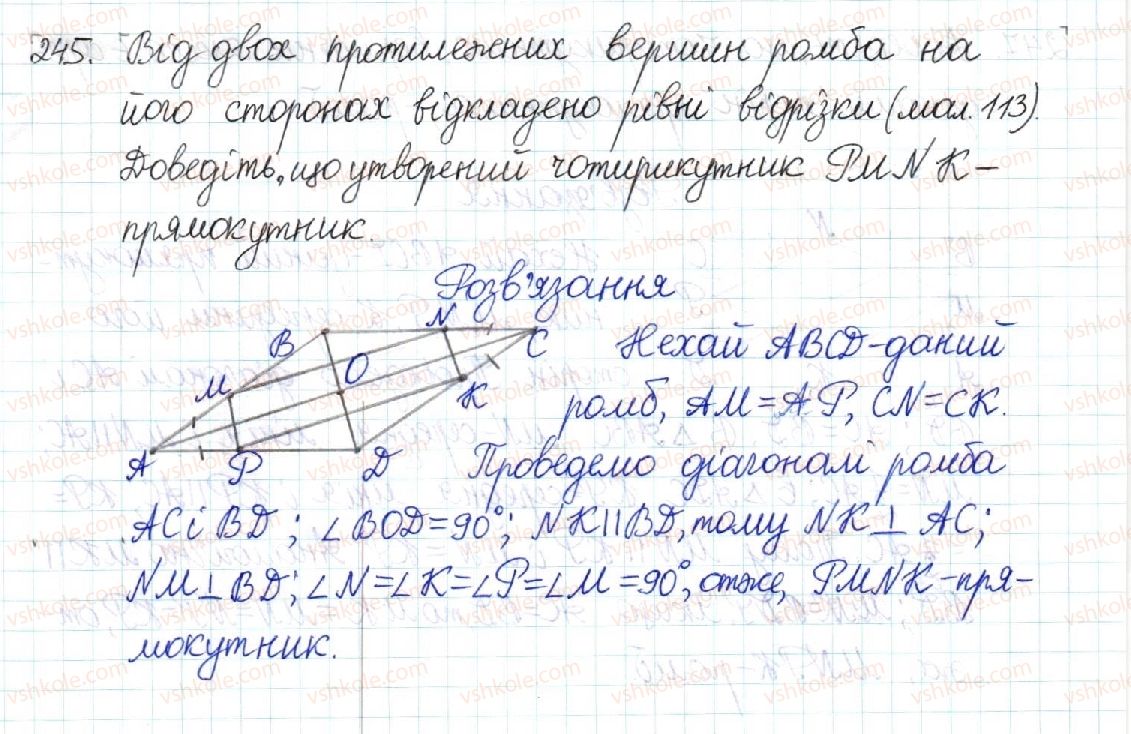 245. Від двох протилежних вершин ромба на
його сторонах відкладено рівні відрізки (мал. 113).
Доведіть, що утворений чотирикутник PMNK –
прямокутник.
Розв'язання
B N C
M O K
A P D
Нехай ABCD - даний
ромб, AM = AP, CN = CK.
Проведемо діагоналі ромба
AC і BD; ∠BOD = 90°; NK || BD, тому NK ⊥ AC;
NM ⊥ BD; ∠N = ∠K = ∠P = ∠M = 90°, отже, PMNK - пря-
мокутник.
vshkole.com